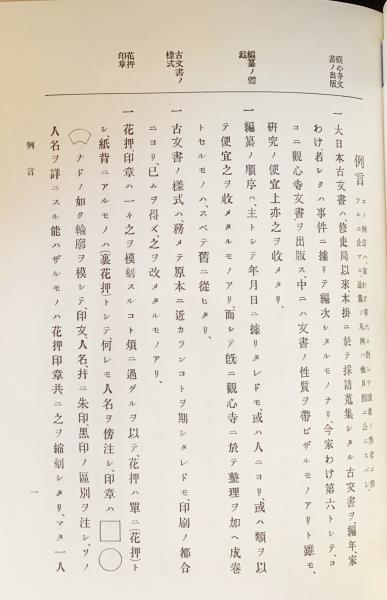 例言
コノ例言ハ、家わけ第六ニ關シテ讀者ノ
フルニ止マル、追テ第一册ノ凡例ハ別ニ公ニスベシ、
觀心寺文
書ノ出版
一大日本古文書ハ、修史局以來本掛ニ於テ採訪蒐集シタル古文書ヲ、編年、家
わけ、若シクハ事件ニ據リテ編次シタルモノナリ、今家わけ第六トシテ、コ
コニ觀心寺文書ヲ出版ス、中ニハ文書ノ性質ヲ帶ビザルモノアリト雖モ、
研究ノ便宜上亦之ヲ收メタリ、
編纂ノ體
裁
一編纂ノ順序ハ、主トシテ年月日ニ據リタレドモ、或ハ人ニヨリ、或ハ類ヲ以
テ便宜之ヲ收メタルモノアリ、而シテ既ニ觀心寺ニ於テ整理ヲ加ヘ成卷
トセルモノハ、スベテ舊ニ從ヒタリ、
古文書ノ
樣式
一古文書ノ樣式ハ、務メテ原本ニ近カランコトヲ期シタレドモ、印刷ノ都合
ニヨリ、已ムヲ得ズ之ヲ改メタルモノアリ、
花押
印章
一花押、印章ハ一々之ヲ模刻スルコト煩ニ過グルヲ以テ花押ハ單ニ(花押)ト
シ、紙背ニアルモノハ(裏花押)トシテ何レモ人名ヲ傍注シ、印章ハ□○
ナドノ如ク輪廓ヲ模シテ、印文、人名、幷ニ朱印、黑印ノ區別ヲ注シ、ソノ
人名ヲ詳ニスル能ハザルモノハ花押印章共ニ之ヲ縮刻シタリ、マタ一人
例言
一